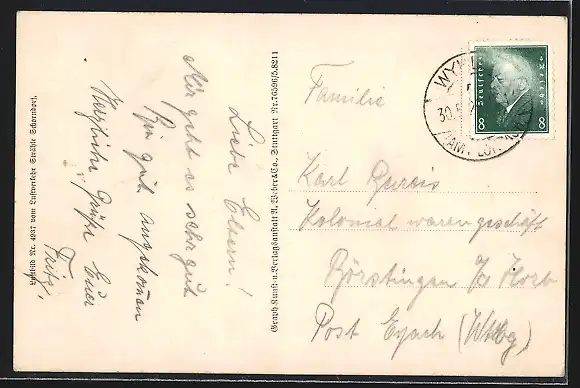 Liebe Eltern!
Mir geht es sehr gut
Bin gut angekommen
Herzliche Grüße Euer
Fritz,
Luftbild Nr. 4987 vom Luftverkehr Strähle Schorndorf.
Graph. Kunst- u. Verlagsanstalt A. Weber & Co., Stuttgart Nr. 76596/5.8211
Familie
Karl Gureis
Kolonial warengeschäft
Börstingen O/A Horb
Post Eyach (Wttbg)
Deutsches Reich
8 8
WYH
30.
(AM. LÖR